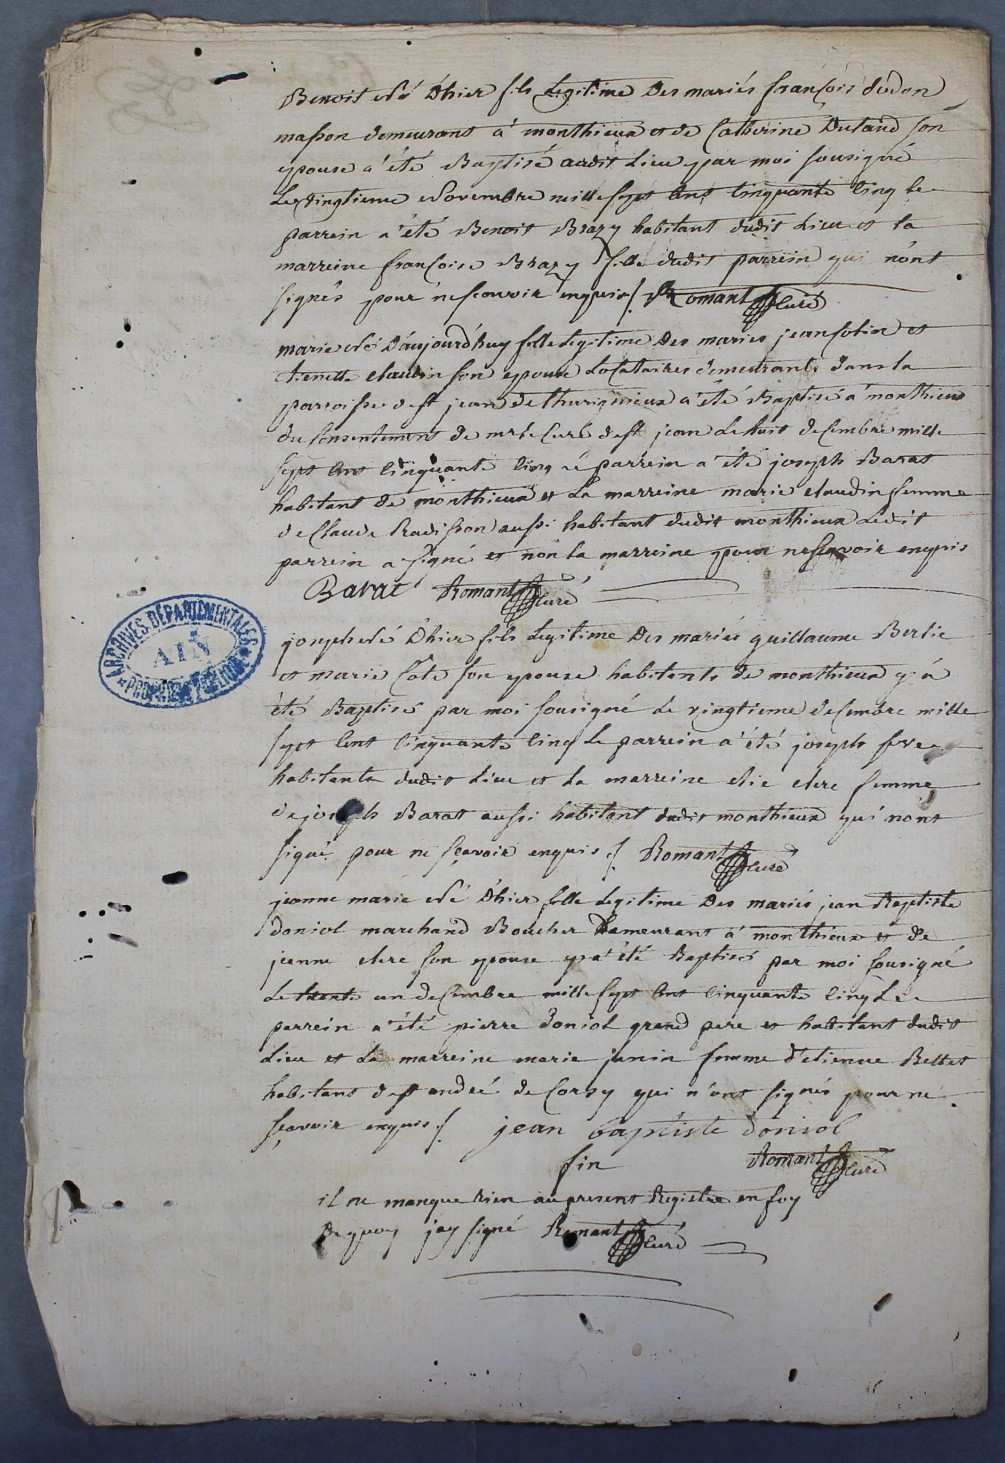 Benoit né d'hier fils legitime des mariés françois dudon
masson demeurant à monthieux et de Catherine Dutand son
epouse a été Baptisé audit Lieu par moi sousigné
Le vingtieme Novembre mille sept Cent Cinquante Cinq le
parrein a été Benoit Brazy habitant dudit Lieu et la
marreine françoise Brazy fille dudit parrein qui n'ont
signés pour ne scavoir enquis Romant Curé
marie née d'aujourd'huy fille Legitime des mariés jean
claudin son epouse Locataires demeurants dans la
parroisse de st jean de thurigneux a été Baptisé à monthieux
du Consentement de mr le Curé de st jean Le huit decembre mille
sept Cent Cinquante Cinq le parrein a été joseph Barat
habitant de monthieux et La marreine marie claudin femme
de Claude Radisson aussi habitant dudit monthieux Ledit
parrein a signé et non la marreine pour ne scavoir enquis
Barat Romant Curé
joseph né d'hier fils Legitime des mariés guillaume Berlie
et marie Cote son epouse habitants de monthieux y a
été Baptisé par moi sousigné Le vingtieme decembre mille
sept Cent Cinquante Cinq Le parrein a été joseph
habitant dudit Lieu et La marreine clere femme
de joseph Barat aussi habitant dudit monthieux qui n'ont
signé pour ne scavoir enquis Romant Curé
jeanne marie né d'hier fille Legitime des mariés jean Baptiste
doniol marchand Boucher demeurant à monthieux et de
jeanne clere son epouse y a été Baptisé par moi sousigné
Le trente un decembre mille sept Cent Cinquante Cinq Le
parrein a été pierre doniol grand pere et habitant dudit
Lieu et La marreine marie janin femme d'etienne Bettet
habitant de st andré de Corsy qui n'ont signés pour ne
scavoir enquis jean baptiste doniol
fin Romant Curé
il ne manque rien au present Registre en foy
de quoy j'ay signé Romant Curé
ARCHIVES DÉPARTEMENTALES
AIN
PROPRIÉTÉ PUBLIQUE